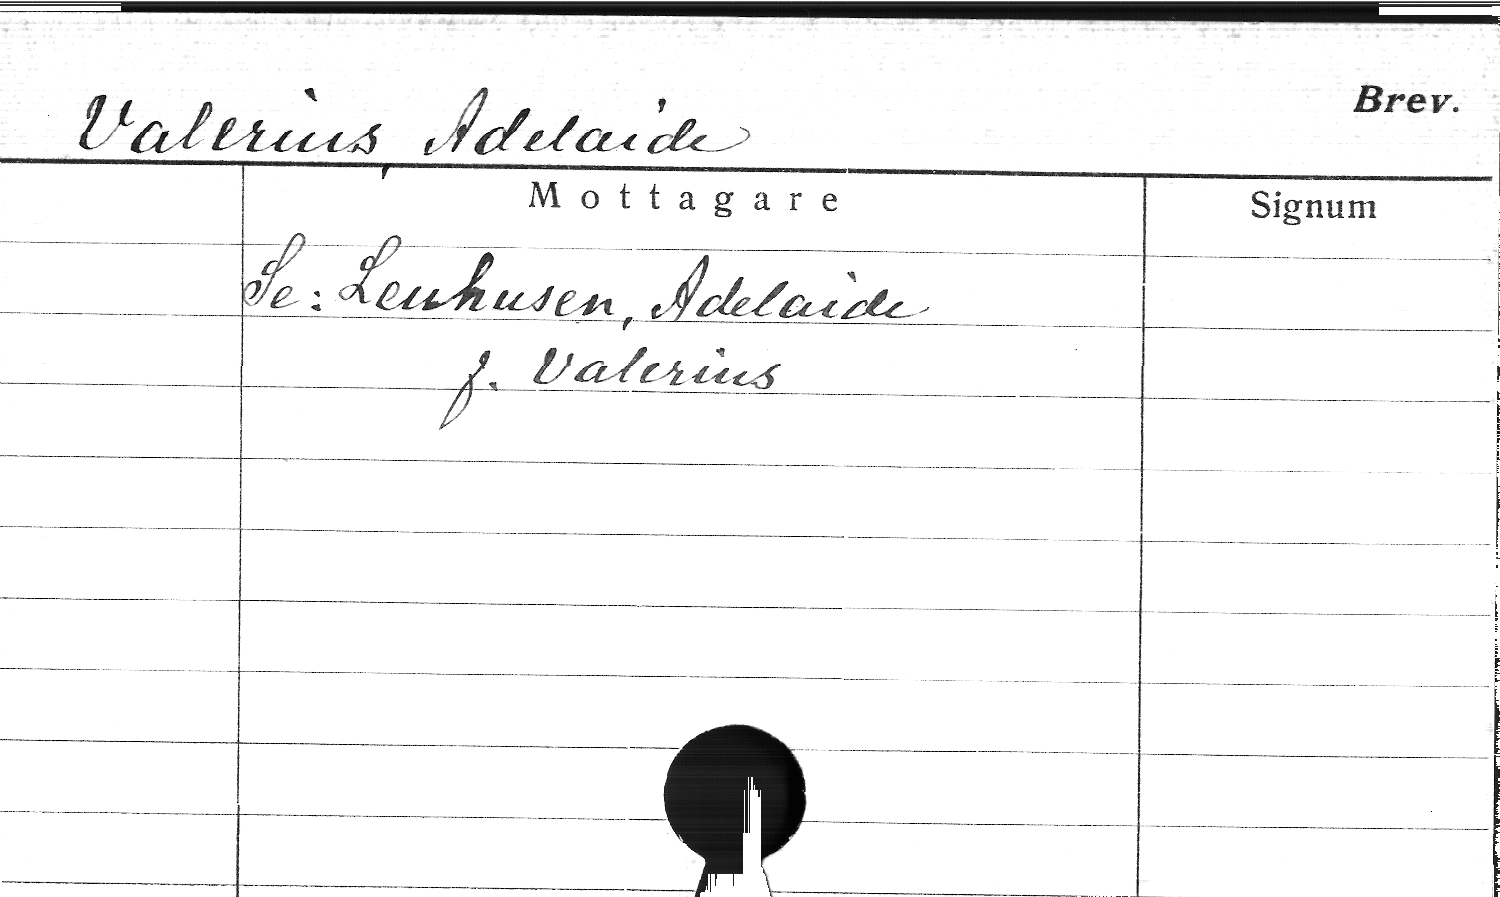 Brev.
Valerius, Adelaide
Mottagare
Signum
Se: Leuhusen, Adelaide
f. Valerius